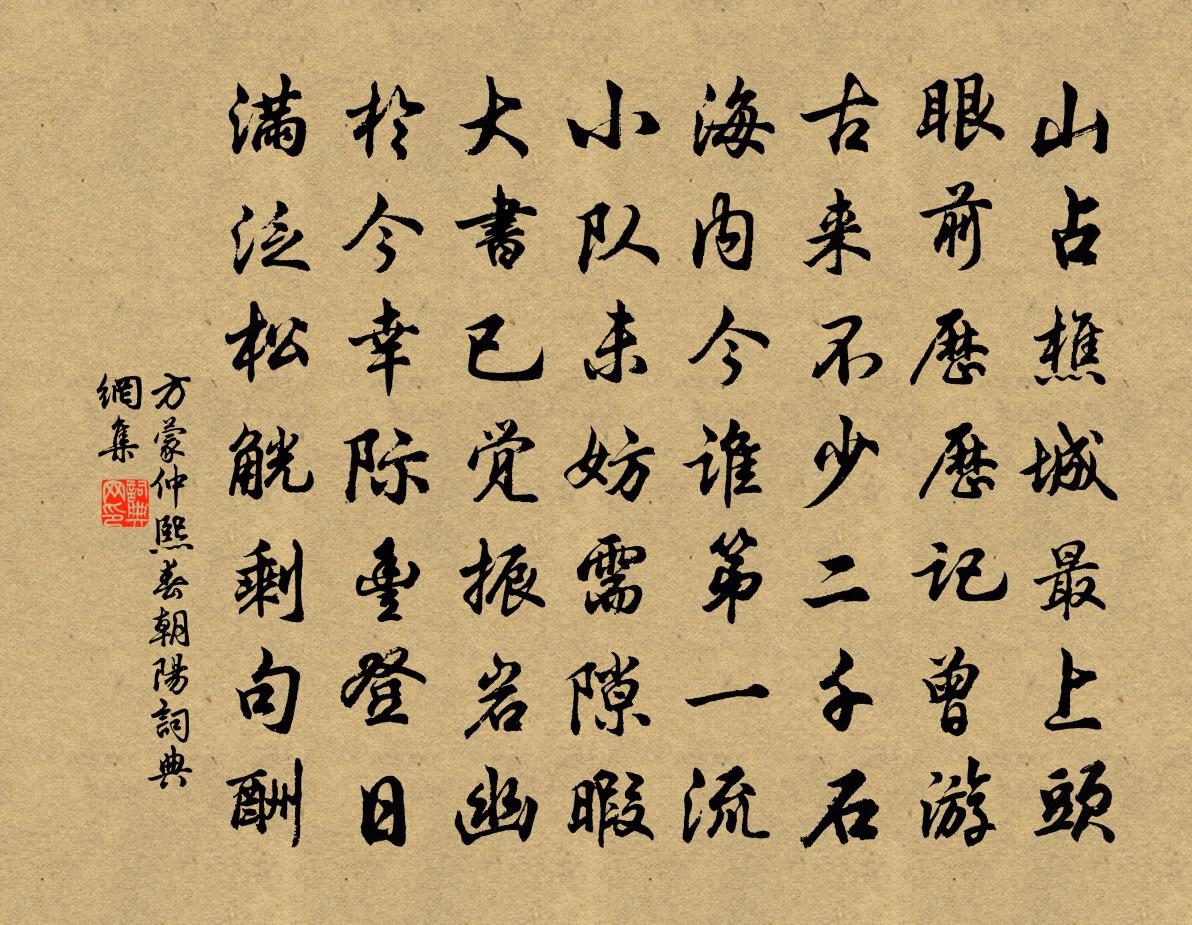 山占樵城最上頭
眼前歷歷記曾游
古来不少二千石
海内今谁第一流
小队未妨需隙暇
大書已觉振岩幽
於今幸际豊登日
满泛松觥剩句酬
方蒙仲熙春朝陽詞典
網集
詞典网印